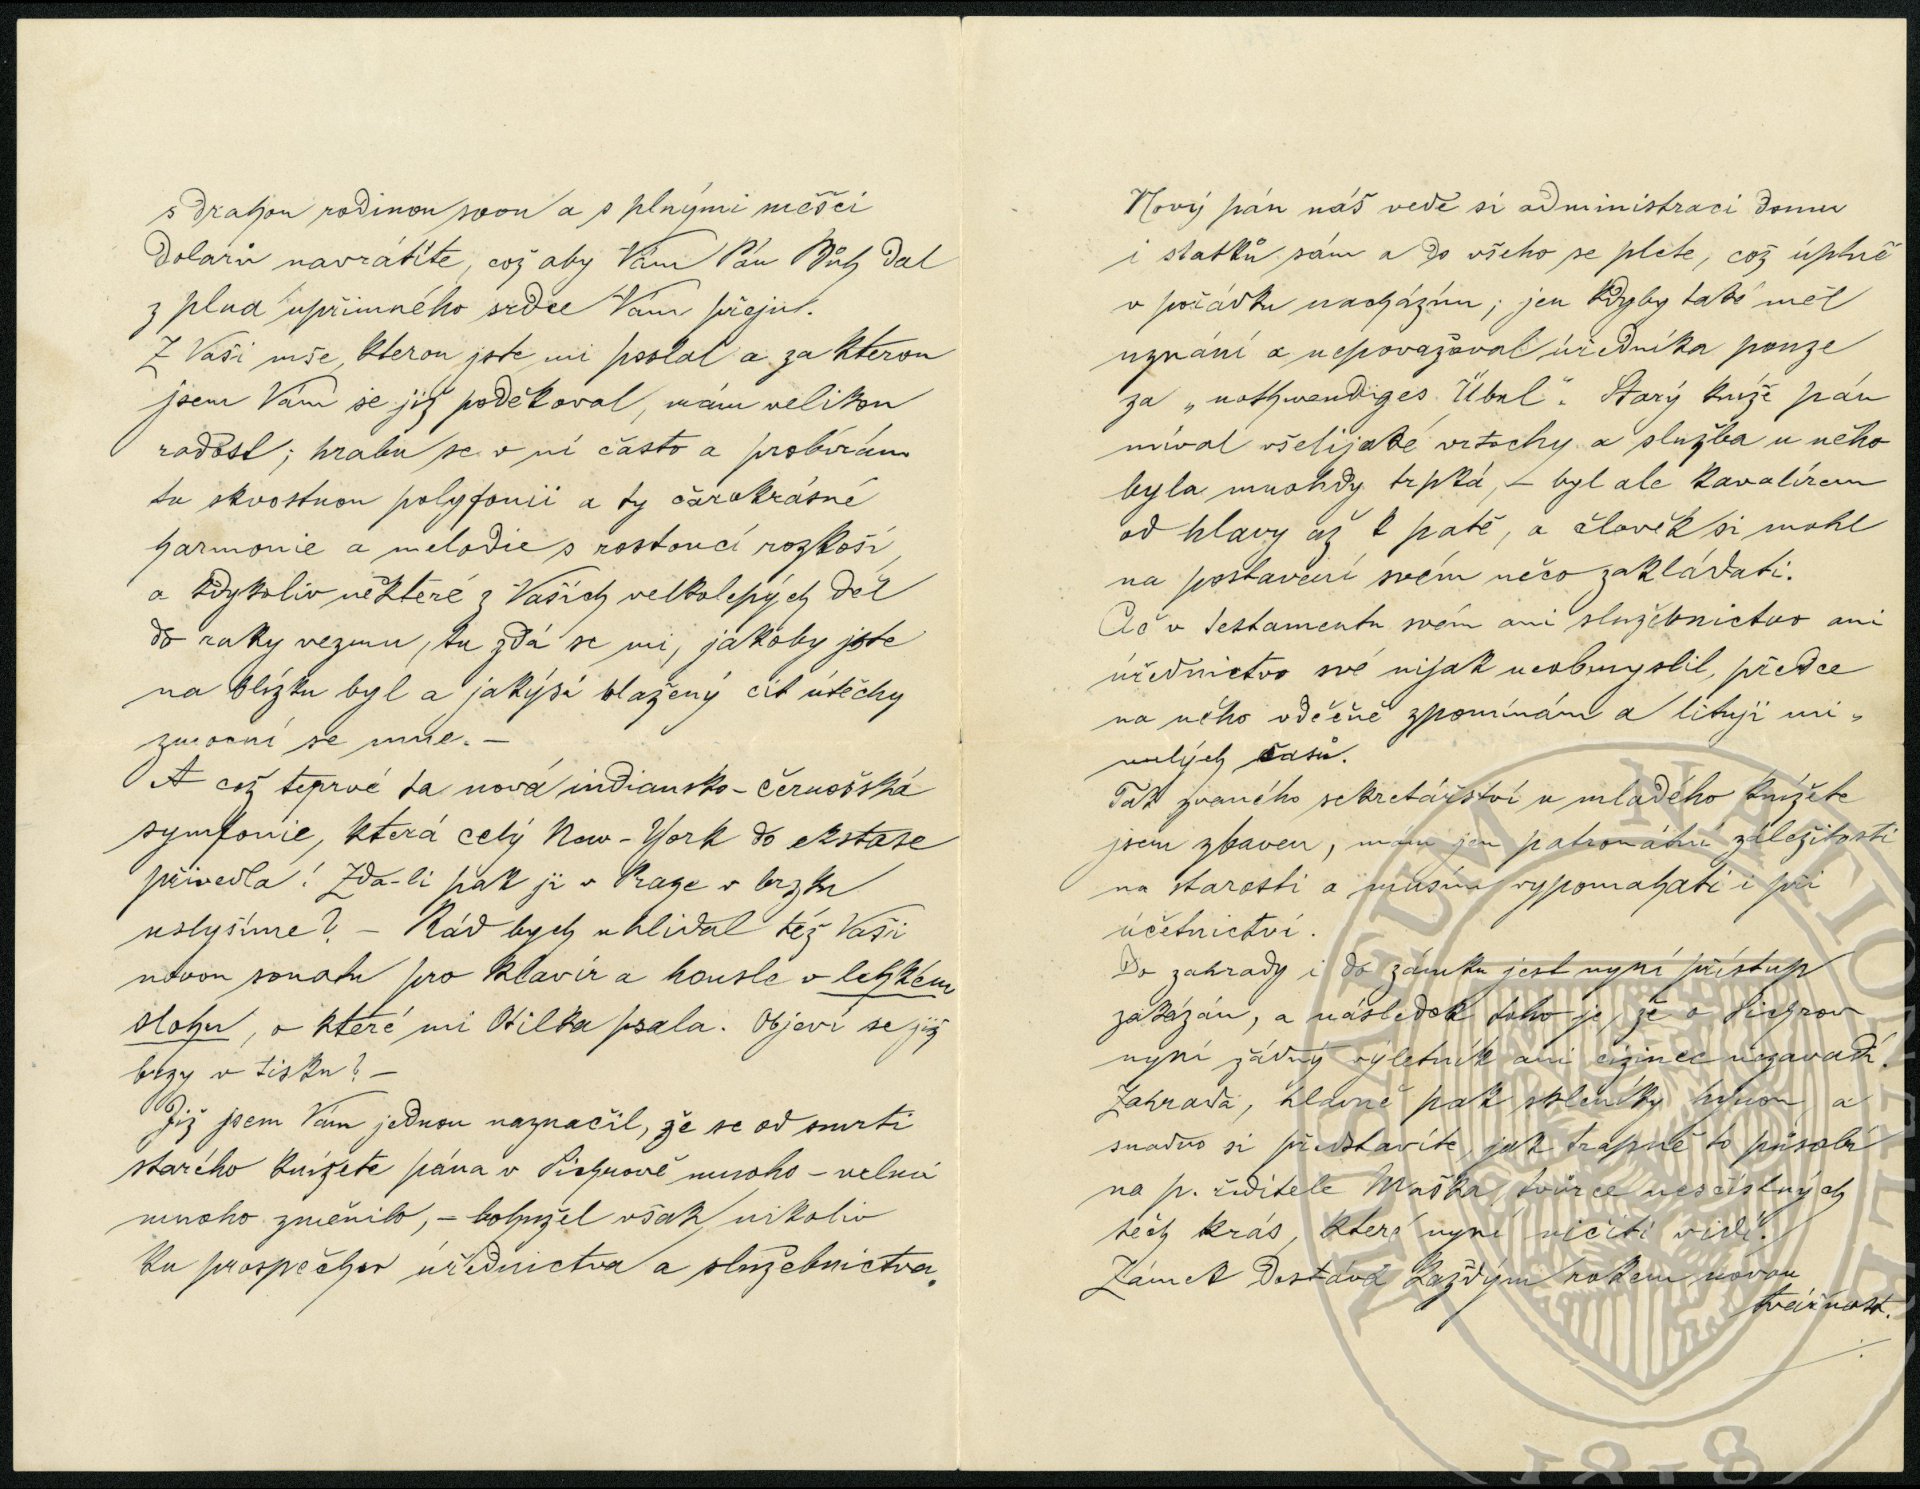 s drahou rodinou svou a s plnými měšci
dolarů navrátíte, což aby Vám Pán Bůh dal
z plna upřimného srdce Vám přeju.
Z Vaší mše, kterou jste mi poslal a za kterou
jsem Vám se již poděkoval, mám velikou
radost; hrabu se v ní často a probírám
tu skvostnou polyfonii a ty čarokrásné
harmonie a melodie s rostoucí rozkoší,
a kdykoliv některé z Vašich velkolepých děl
do ruky vezmu, tu zdá se mi, jakoby jste
na blízku byl a jakýsi blažený cit útěchy
zmocní se mne. —
A což teprvé ta nová indiansko-černošská
symfonie, která celý New-York do ekstase
přivedla! Zda-li pak ji v Praze v brzku
uslyšíme? — Rád bych uhlídal též Vaši
novou sonatu pro klavír a housle v lehkém
slohu, o které mi Otilka psala. Objeví se již
brzy v tisku? —
Již jsem Vám jednou naznačil, že se od smrti
starého knížete pána v Sichrově mnoho – velmi
mnoho změnilo, – bohužel však nikoliv
ku prospěchu úřednictva a služebnictva.
Nový pán náš vede si administraci domu
i statků sám a do všeho se plete, což úplně
v pořádku nacházím; jen kdyby také měl
uznání a nepovažoval úředníka pouze
za „nothwendiges Übel“. Starý kníže pán
míval všelijaké vrtochy a služba u něho
byla mnohdy trpká, – byl ale kavalírem
od hlavy až k patě, a člověk si mohl
na postavení svém něco zakládati.
Ač v testamentu svém ani služebnictvo ani
úřednictvo své nijak neobmyslil, předce
na něho vděčně zpomínám a lituji mi-
nulých časů.
Tak zvaného sekretářství u mladého knížete
jsem zbaven, mám jen patronátní záležitosti
na starosti a musím vypomahati i při
účetnictví.
Do zahrady i do zámku jest nyní přístup
zakázán, a následek toho je, že o Sichrov
nyní žádný výletník ani cizinec nezavadí.
Zahrada, hlavně pak skleníky hynou, a
snadno si představíte, jak trapně to působí
na p. ředitele Maška, tvůrce nesčíslných
těch krás, které nyní ničiti vidí.
Zámek dostává každým rokem novou
tvářnost.
MUSAEUM NATIONALE
1818